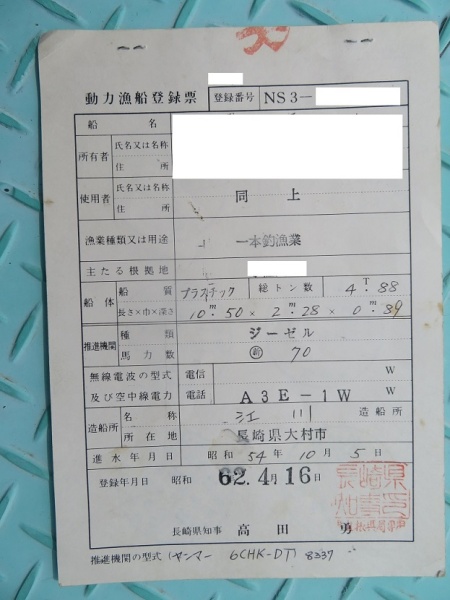 動力漁船登録票
登録番号 NS3-
船名
所有者 氏名又は名称
住所
使用者 氏名又は名称 同上
住所
漁業種類又は用途 一本釣漁業
主たる根拠地
船体 船質 プラスチック 総トン数 4T.88
長さ×巾×深さ 10m.50 × 2m.28 × 0m.89
推進機関 種類 ジーゼル
馬力数 新 70
無線電波の型式 電信 W
及び空中線電力 電話 A3E-1W W
造船所 名称 江川 造船所
所在地 長崎県大村市
進水年月日 昭和 54年 10月 5日
登録年月日 昭和 62.4月16日
長崎県知事 高田 勇
推進機関の型式 (ヤンマー 6CHK-DT) 8337